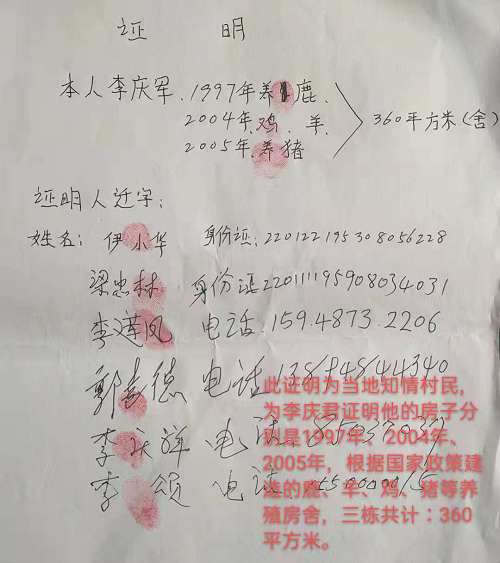 证 明
本人李庆军.1997年养鹿.
2004年.鸡.羊.
2005年.养猪
360平方米(舍)
证明人迁字:
姓名:伊小华 身份证:220122195308056228
梁忠林 身份证220111195908034031
李莲凤 电话.159.4873.2206
德 电话
李庆祥 电话
李颂 电话
此证明为当地知情村民,
为李庆君证明他的房子分
别是1997年、2004年、
2005年,根据国家政策建
造的鹿、羊、鸡、猪等养
殖房舍,三栋共计:360
平方米。